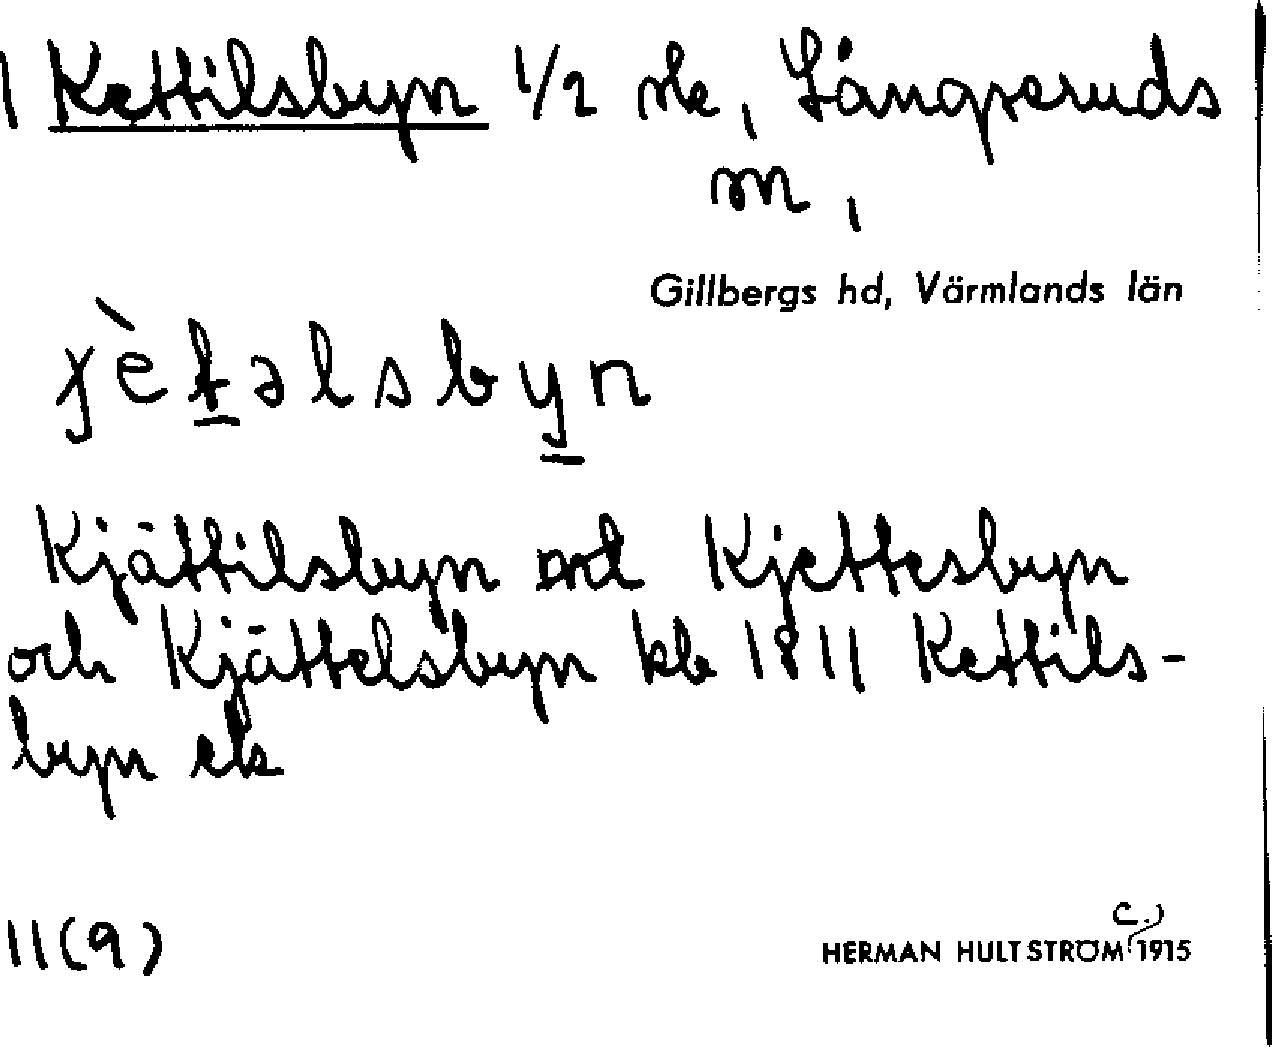 1 Kettilsbyn 1/2 sk, Långseruds
m,
Gillbergs hd, Värmlands län
ɟètəlsbyn
Kjättilsbyn ord Kjettesbyn
och Kjättelsbyn kb 1811 Kettils-
byn els
11(9)
c.)
HERMAN HULTSTRÖM 1915